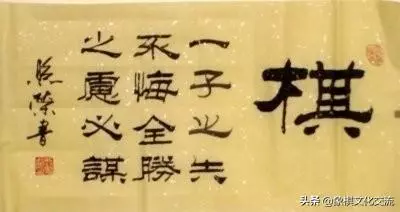 棋
一子之失
不悔全勝
之慮必謀
榮書
头条 @象棋文化交流